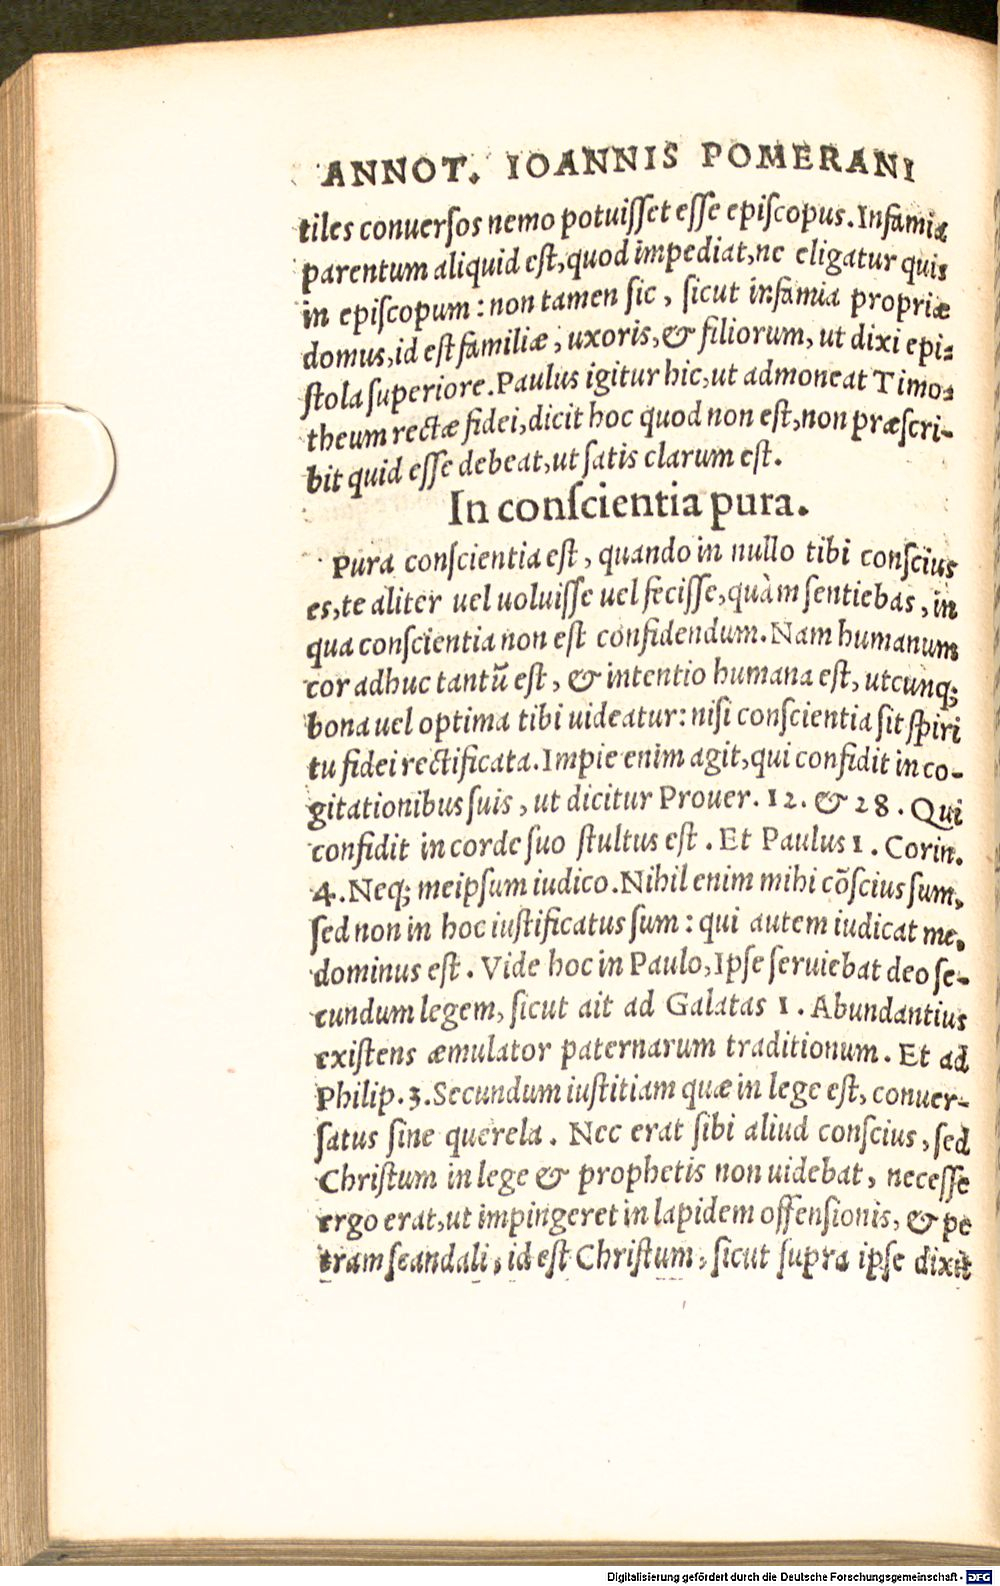 ANNOT. IOANNIS POMERANI
tiles conuerſos nemo potuiſſet eſſe epiſcopus. Infamiæ
parentum aliquid eſt, quod impediat, ne eligatur quis
in epiſcopum: non tamen ſic, ſicut infamia propriæ
domus, id eſt familiæ, uxoris, & filiorum, ut dixi epi-
ſtola ſuperiore. Paulus igitur hic, ut admoneat Timo-
theum rectæ fidei, dicit hoc quod non eſt, non præſcri-
bit quid eſſe debeat, ut ſatis clarum eſt.
In conſcientia pura.
Pura conſcientia eſt, quando in nullo tibi conſcius
es, te aliter uel uoluiſſe uel feciſſe, quàm ſentiebas, in
qua conſcientia non eſt confidendum. Nam humanum
cor adhuc tantũ eſt, & intentio humana eſt, utcunq;
bona uel optima tibi uideatur: niſi conſcientia ſit ſpiri
tu fidei rectificata. Impie enim agit, qui confidit in co-
gitationibus ſuis, ut dicitur Prouer. 12. & 28. Qui
confidit in corde ſuo ſtultus eſt. Et Paulus 1. Corin.
4. Neq; meipſum iudico. Nihil enim mihi cõſcius ſum,
ſed non in hoc iuſtificatus ſum: qui autem iudicat me,
dominus eſt. Vide hoc in Paulo, Ipſe ſeruiebat deo ſe-
cundum legem, ſicut ait ad Galatas 1. Abundantius
exiſtens æmulator paternarum traditionum. Et ad
Philip. 3. Secundum iuſtitiam quæ in lege eſt, conuer-
ſatus ſine querela. Nec erat ſibi aliud conſcius, ſed
Chriſtum in lege & prophetis non uidebat, neceſſe
ergo erat, ut impingeret in lapidem offenſionis, & pe
tram ſcandali, id eſt Chriſtum, ſicut ſupra ipſe dixit
Digitalisierung gefördert durch die Deutsche Forschungsgemeinschaft - DFG